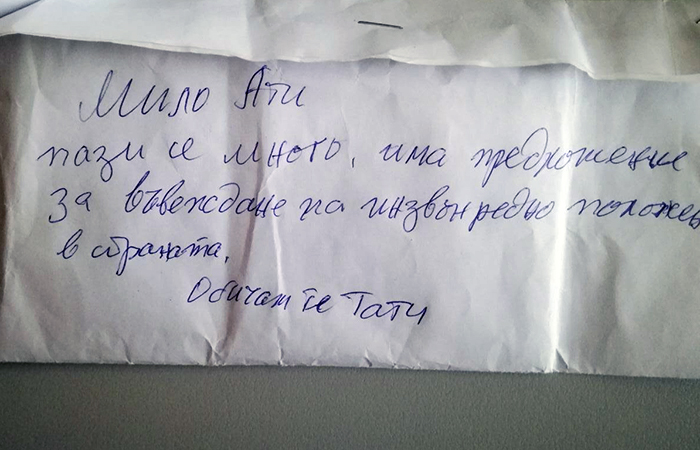 Мило Ати
пази се много, има предложение
за въвеждане на инзвънредно положен
в страната.
Обичам те Тати